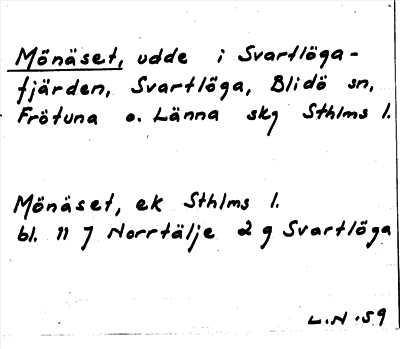 Mönäset, udde i Svartlöga-
fjärden, Svartlöga, Blidö sn,
Frötuna o. Länna skg Sthlms l.
Mönäset, ek Sthlms l.
bl. 11 7 Norrtälje 2 g Svartlöga
L.N.59